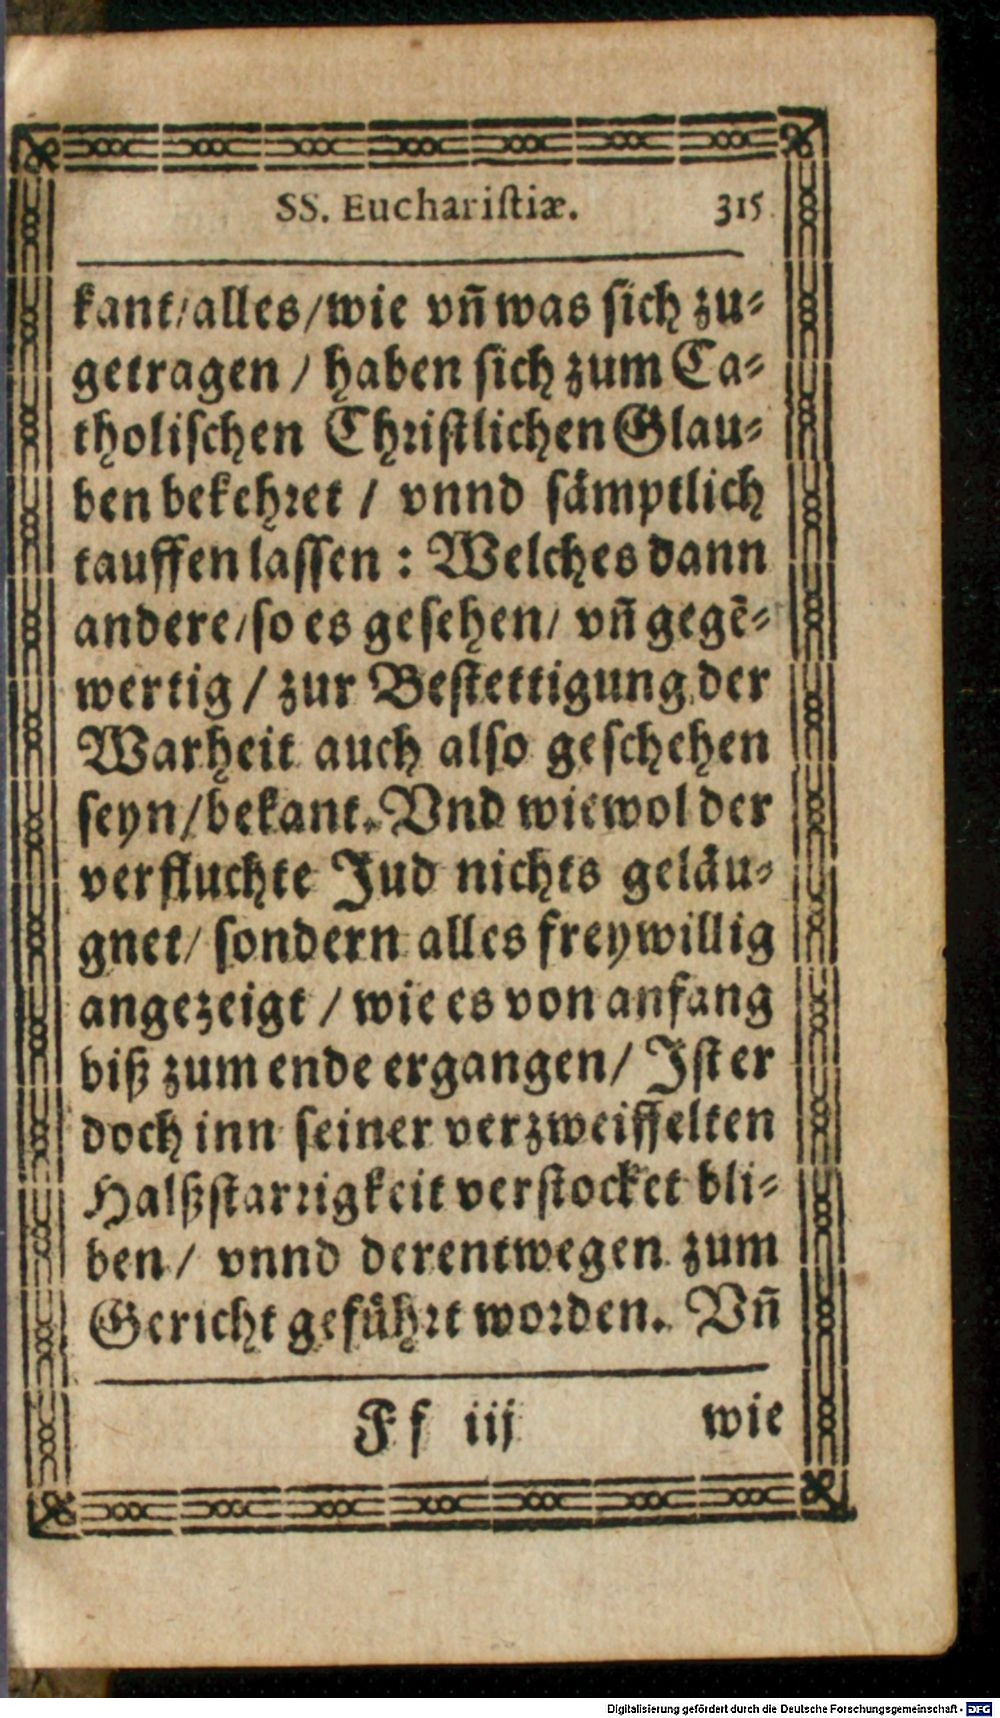 SS. Euchariſtiæ. 315
kant/alles/wie vñ was ſich zu⸗
getragen / haben ſich zum Ca⸗
tholiſchen Chriſtlichen Glau⸗
ben bekehret / vnnd ſämptlich
tauffen laſſen : Welches dann
andere/ſo es geſehen/ vñ gegē⸗
wertig / zur Beſtettigung der
Warheit auch alſo geſchehen
ſeyn/bekant. Vnd wiewol der
verfluchte Jud nichts geläu⸗
gnet/ ſondern alles freywillig
angezeigt / wie es von anfang
biß zum ende ergangen/ Jſt er
doch inn ſeiner verzweiffelten
Halßſtarrigkeit verſtocket bli⸗
ben/ vnnd derentwegen zum
Gericht geführt worden. Vñ
Ff iij wie
Digitalisierung gefördert durch die Deutsche Forschungsgemeinschaft - DFG